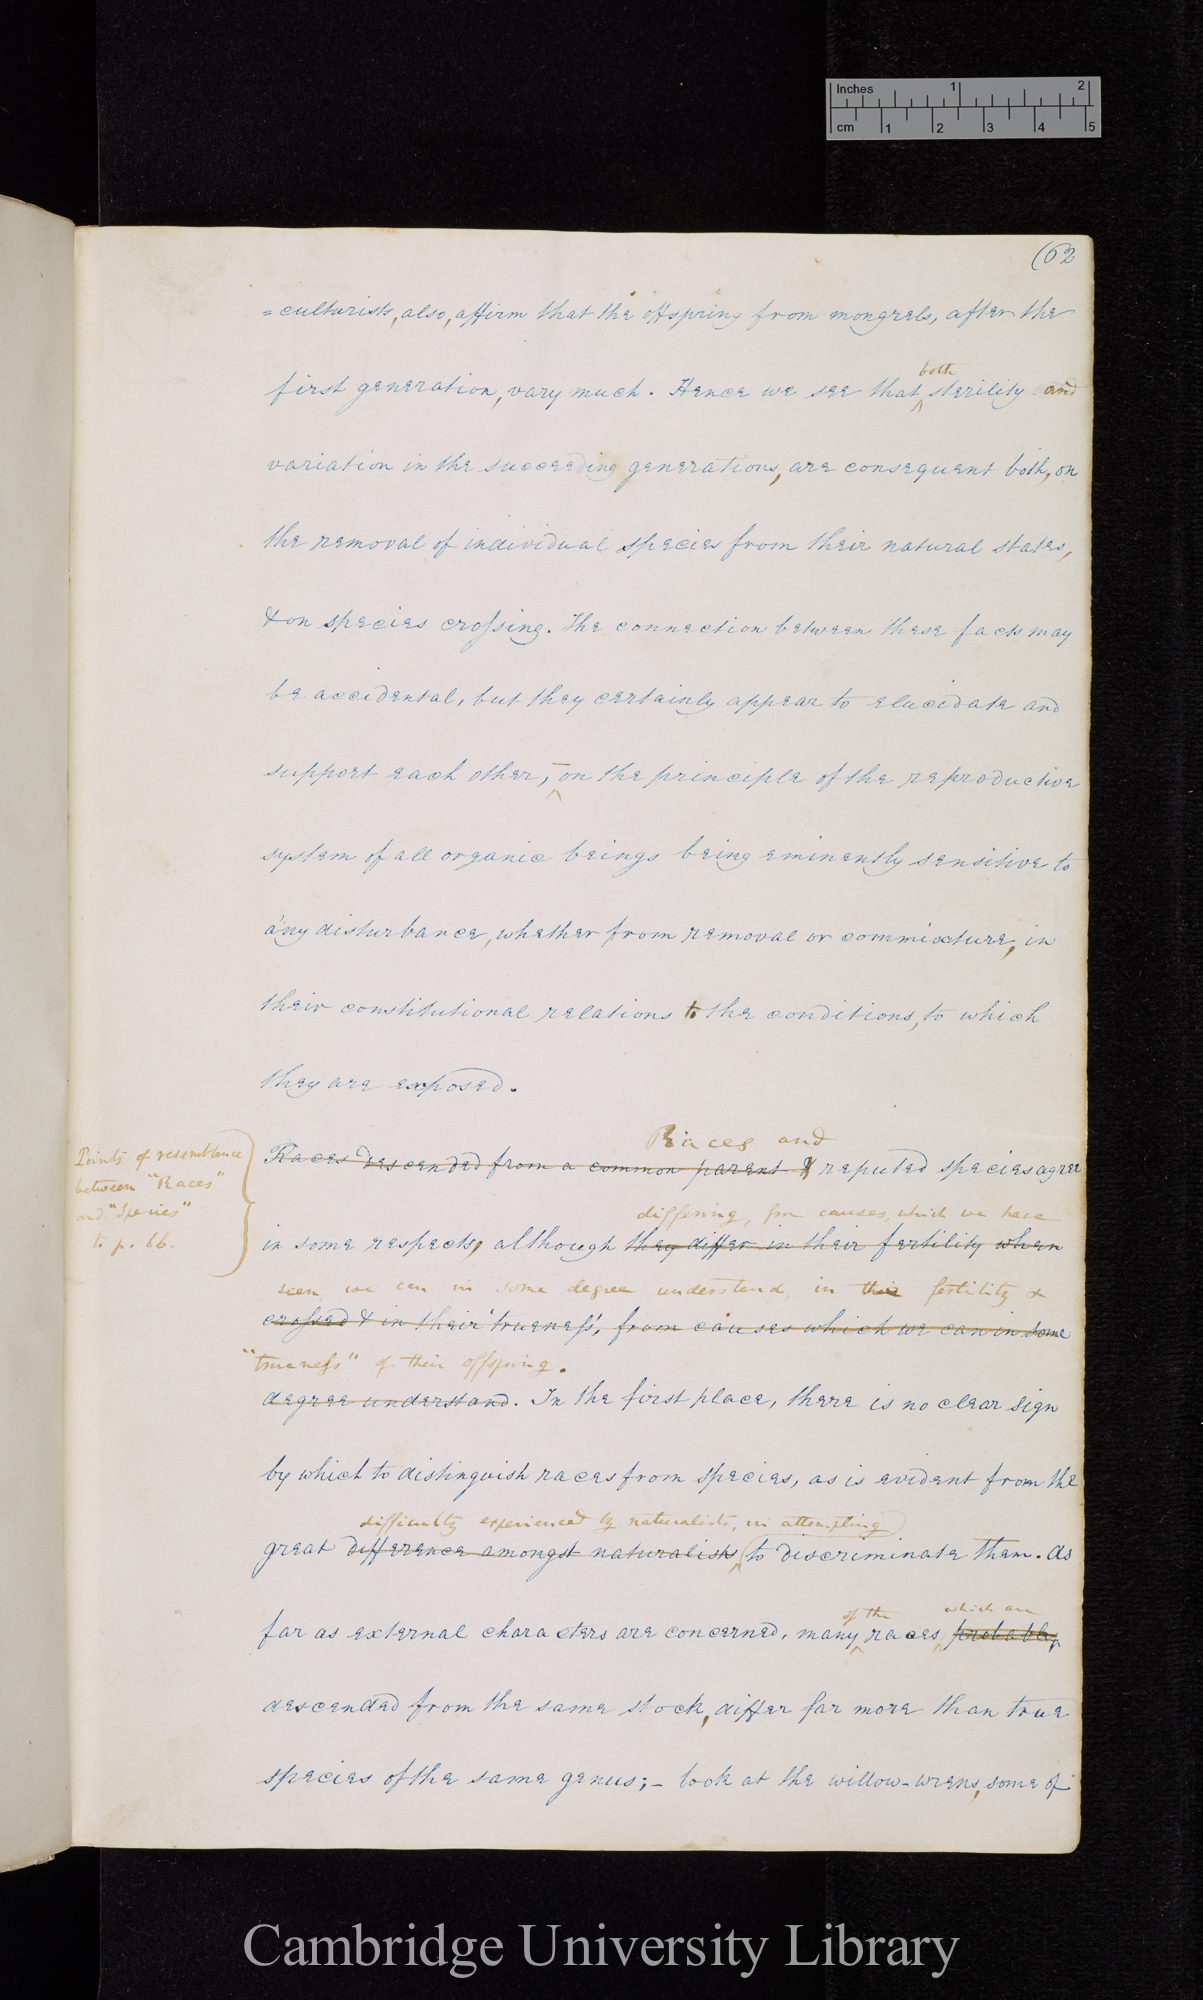 Inches 1 2
cm 1 2 3 4 5
(62
=culturists, also, affirm that the offspring from mongrels, after the
both
first generation, vary much. Hence we see that sterility and
variation in the succeeding generations, are consequent both, on
the removal of individual species from their natural states,
& on species crossing. The connection between these facts may
be accidental, but they certainly appear to elucidate and
support each other, – on the principle of the reproductive
system of all organic beings being eminently sensitive to
any disturbance, whether from removal or commixture, in
their constitutional relations to the conditions, to which
they are exposed.
Races and
Races descended from a common parent & reputed species agree
Points of resemblance
between "Races"
and "Species"
to p. 66.
differing, from causes, which we have
in some respects, although they differ in their fertility when
seen, we can in some degree understand, in their fertility &
crossed & in their 'trueness', from causes which we can in some
"trueness" of their offspring.
degree understand. In the first place, there is no clear sign
by which to distinguish races from species, as is evident from the
difficulty experienced by naturalists, in attempting
great difference amongst naturalists to discriminate them. As
of the which are
far as external characters are concerned, many races, probably,
descended from the same stock, differ far more than true
species of the same genus; – look at the willow-wrens, some of
Cambridge University Library